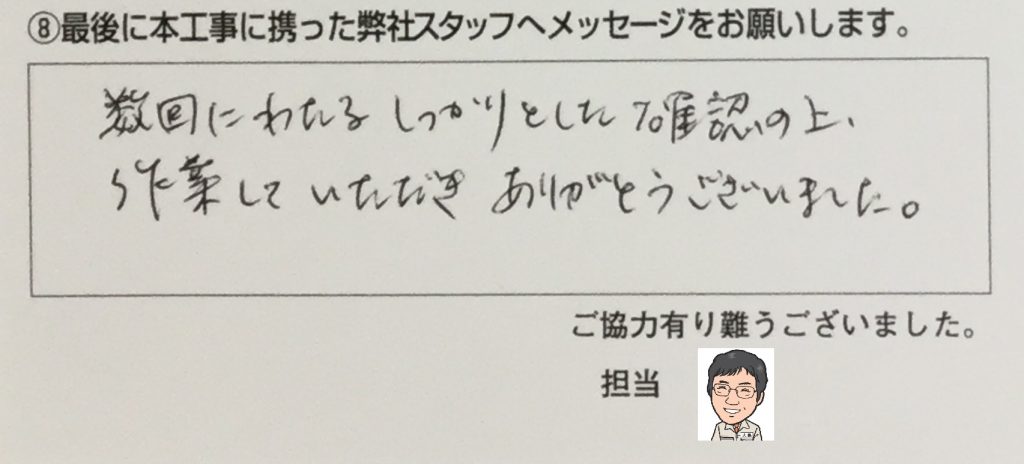 ⑧最後に本工事に携った弊社スタッフへメッセージをお願いします。
数回にわたる しっかりとした確認の上、
作業して いただき ありがとうございました。
ご協力有り難うございました。
担当